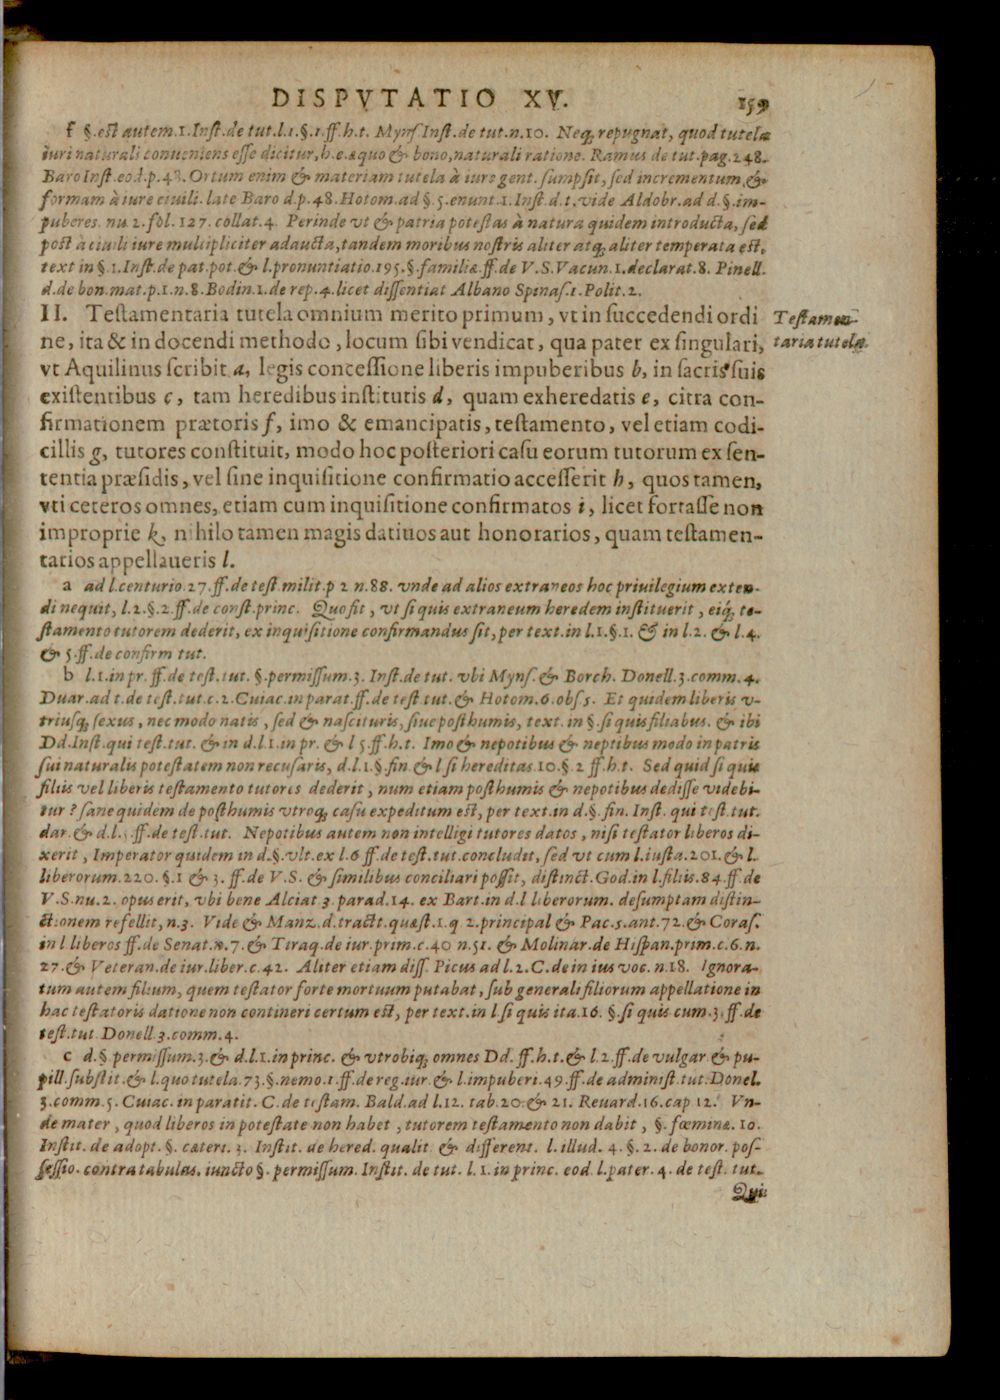 DISPVTATIO XV. 159
f §. est autem.1.Inst.de tut.l.1.§.1.ff.h.t. Myns.Inst.de tut.n.10. Neq; repugnat, quod tutelæ
iuri naturali conueniens esse dicitur, h.e.æquo & bono, naturali ratione. Ramus de tut.pag.248.
Baro Inst.eod.p.48. Ortum enim & materiam tutela à iure gent. sumpsit, sed incrementum, &
formam à iure ciuili. late Baro d.p.48. Hotom.ad §.5.enunt.1.Inst.d.t.vide Aldobr.ad d.§.im-
puberes. nu.2.fol.127.collat.4. Perinde vt & patria potestas à natura quidem introducta, sed
post à ciuili iure multipliciter adaucta, tandem moribus nostris aliter atq; aliter temperata est,
text in §.1.Inst.de pat.pot.& l.pronuntiatio.195.§.familiæ.ff.de V.S.Vacun.1.declarat.8. Pinell.
d.de bon.mat.p.1.n.8.Bodin.1.de rep.4.licet dissentiat Albano Spinas.1.Polit.2.
II. Testamentaria tutela omnium merito primum, vt in succedendi ordi
Testamen-
ne, ita & in docendi methodo, locum sibi vendicat, qua pater ex singulari,
taria tutela.
vt Aquilinus scribit a, legis concessione liberis impuberibus b, in sacris suis
existentibus c, tam heredibus institutis d, quam exheredatis e, citra con-
firmationem prætoris f, imo & emancipatis, testamento, vel etiam codi-
cillis g, tutores constituit, modo hoc posteriori casu eorum tutorum ex sen-
tentia præsidis, vel sine inquisitione confirmatio accesserit h, quos tamen,
vti ceteros omnes, etiam cum inquisitione confirmatos i, licet fortasse non
improprie k, nihilo tamen magis datiuos aut honorarios, quam testamen-
tarios appellaueris l.
a ad l.centurio.27.ff.de test milit.p 2 n.88. vnde ad alios extraneos hoc priuilegium exten-
di nequit, l.2.§.2.ff.de const.princ. Quo fit, vt si quis extraneum heredem instituerit, eiq; te-
stamento tutorem dederit, ex inquisitione confirmandus sit, per text.in l.1.§.1. & in l.2. & l.4.
& 5.ff.de confirm tut.
b l.1.in pr. ff.de test. tut. §.permissum.3. Inst.de tut. vbi Myns.& Borch. Donell.3.comm.4.
Duar.ad t.de test.tut.c.2.Cuiac.in parat.ff.de test.tut.& Hotom.6.obs 5. Et quidem liberis v-
triusq; sexus, nec modo natis, sed & nascituris, siue posthumis, text. in §.si quis filiabus. & ibi
Dd.Inst.qui test.tut. & in d.l.1.in pr. & l 5.ff.h.t. Imo & nepotibus & neptibus modo in patris
sui naturalis potestatem non recusaris, d.l.1.§.fin.& l si hereditas.10.§.2 ff.h.t. Sed quid si quis
filiis vel liberis testamento tutores dederit, num etiam posthumis & nepotibus dedisse videbi-
tur? sane quidem de posthumis vtroq; casu expeditum est, per text.in d.§.fin. Inst. qui test.tut.
dar.& d.l.5.ff.de test.tut. Nepotibus autem non intelligi tutores datos, nisi testator liberos di-
xerit, Imperator quidem in d.§.vlt.ex l.6 ff.de test.tut.concludit, sed vt cum l.iusta.201.& l.
liberorum.220.§.1 & 3. ff.de V.S. & similibus conciliari possit, distinct.God.in l.filiis.84.ff.de
V.S.nu.2. opus erit, vbi bene Alciat 3.parad.14. ex Bart.in d.l liberorum. desumptam distin-
ctionem refellit, n.3. Vide & Manz.d.tract.quæst.1.q 2.principal & Pac.5.ant.72.& Coras.
in l liberos ff.de Senat.n.7.& Tiraq.de iur.prim.c.40 n.51. & Molinar.de Hispan.prim.c.6.n.
27.& Veteran.de iur.liber.c.42. Aliter etiam diss. Picus ad l.2.C.de in ius voc.n.18. Ignora-
tum autem filium, quem testator forte mortuum putabat, sub generali filiorum appellatione in
hac testatoris datione non contineri certum est, per text.in l si quis ita.16. §.si quis cum.3.ff.de
test.tut Donell 3.comm.4.
c d.§ permissum.3.& d.l.1.in princ. & vtrobiq; omnes Dd. ff.h.t.& l.2.ff.de vulgar & pu-
pill.substit.& l.quo tutela.73.§.nemo.1.ff.de reg.iur.& l.impuberi.49.ff.de administ.tut.Donel.
3.comm.5. Cuiac.in paratit. C.de testam. Bald.ad l.12. tab.20.& 21. Reuard.16.cap 12. Vn-
de mater, quod liberos in potestate non habet, tutorem testamento non dabit, §. fœminæ. 10.
Instit. de adopt. §. cateri. 3. Instit. de hered. qualit & different. l. illud. 4. §. 2. de bonor. pos-
sessio. contra tabulas, iuncto §. permissum. Instit. de tut. l. 1. in princ. eod l.pater. 4. de test. tut.
Qui